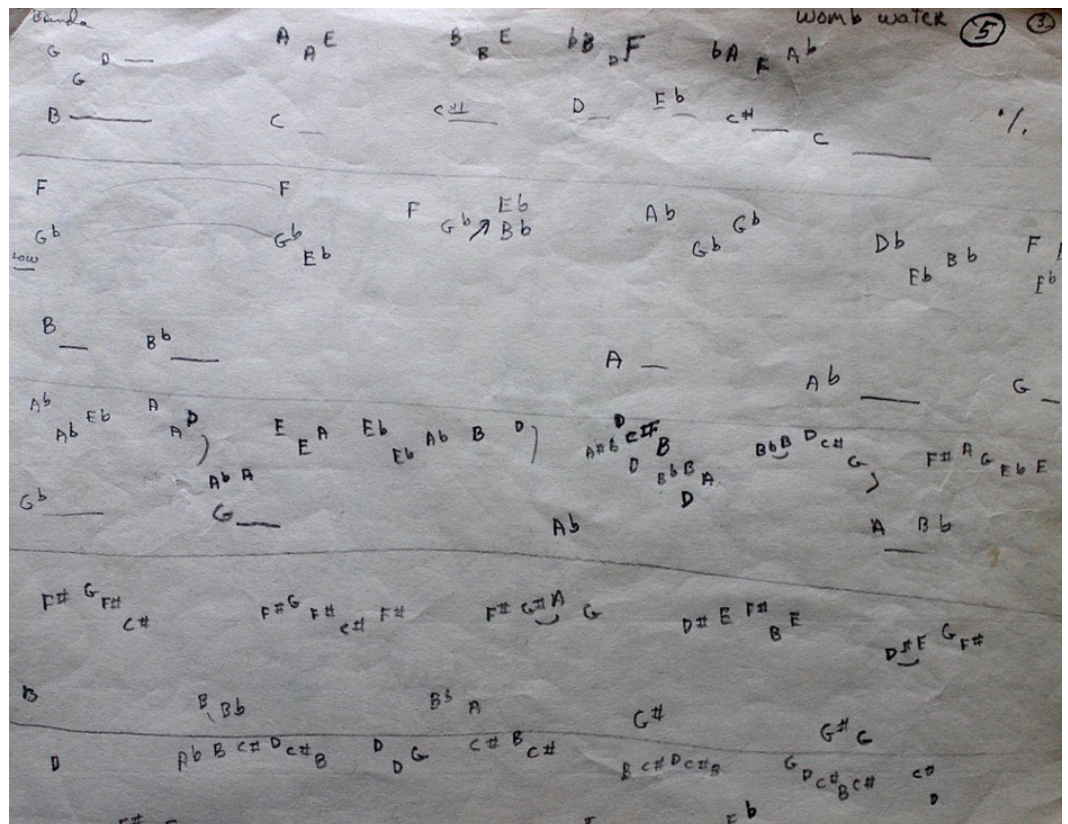 Womb water 5 3
G D A A E B B E bB D F bA F Ab
G
B C C# D Eb C# C %
F F F Gb Eb Bb Ab Gb Gb Db Eb Bb F Eb
Gb Gb Eb
LOW
B Bb A Ab G
Ab Ab Eb A A D E E A Eb Eb Ab B D A# B D C# B BbB D C# G F# A G Eb E
Ab A D BbB A D
Gb G Ab A Bb
F# G F# C# F# G F# C# F# F# G# A G D# E F# B E D# E G F#
B B Bb Bb A G# G# G
D Ab B C# D C# B D D G C# B C# B C# D C# B G D C# B C# C# D
F# Eb